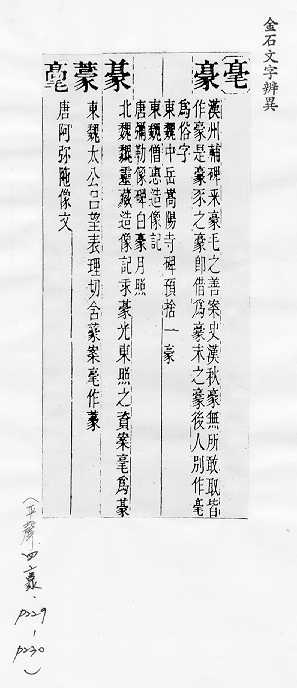 金石文字辨異
毫
豪
漢州輔碑采豪毛之善案史漢秋豪無所敢取皆
作豪是豪豕之豪卽借爲豪末之豪後人別作毫
爲俗字
東魏中岳嵩陽寺碑預捨一豪
東魏僧惠造像記
唐彌勒像碑白豪月照
北魏魏靈藏造像記求 光東照之資案毫爲
東魏太公呂望表理切含 案毫作
唐阿弥陁像文
(平聲四豪.
p229-
p230)